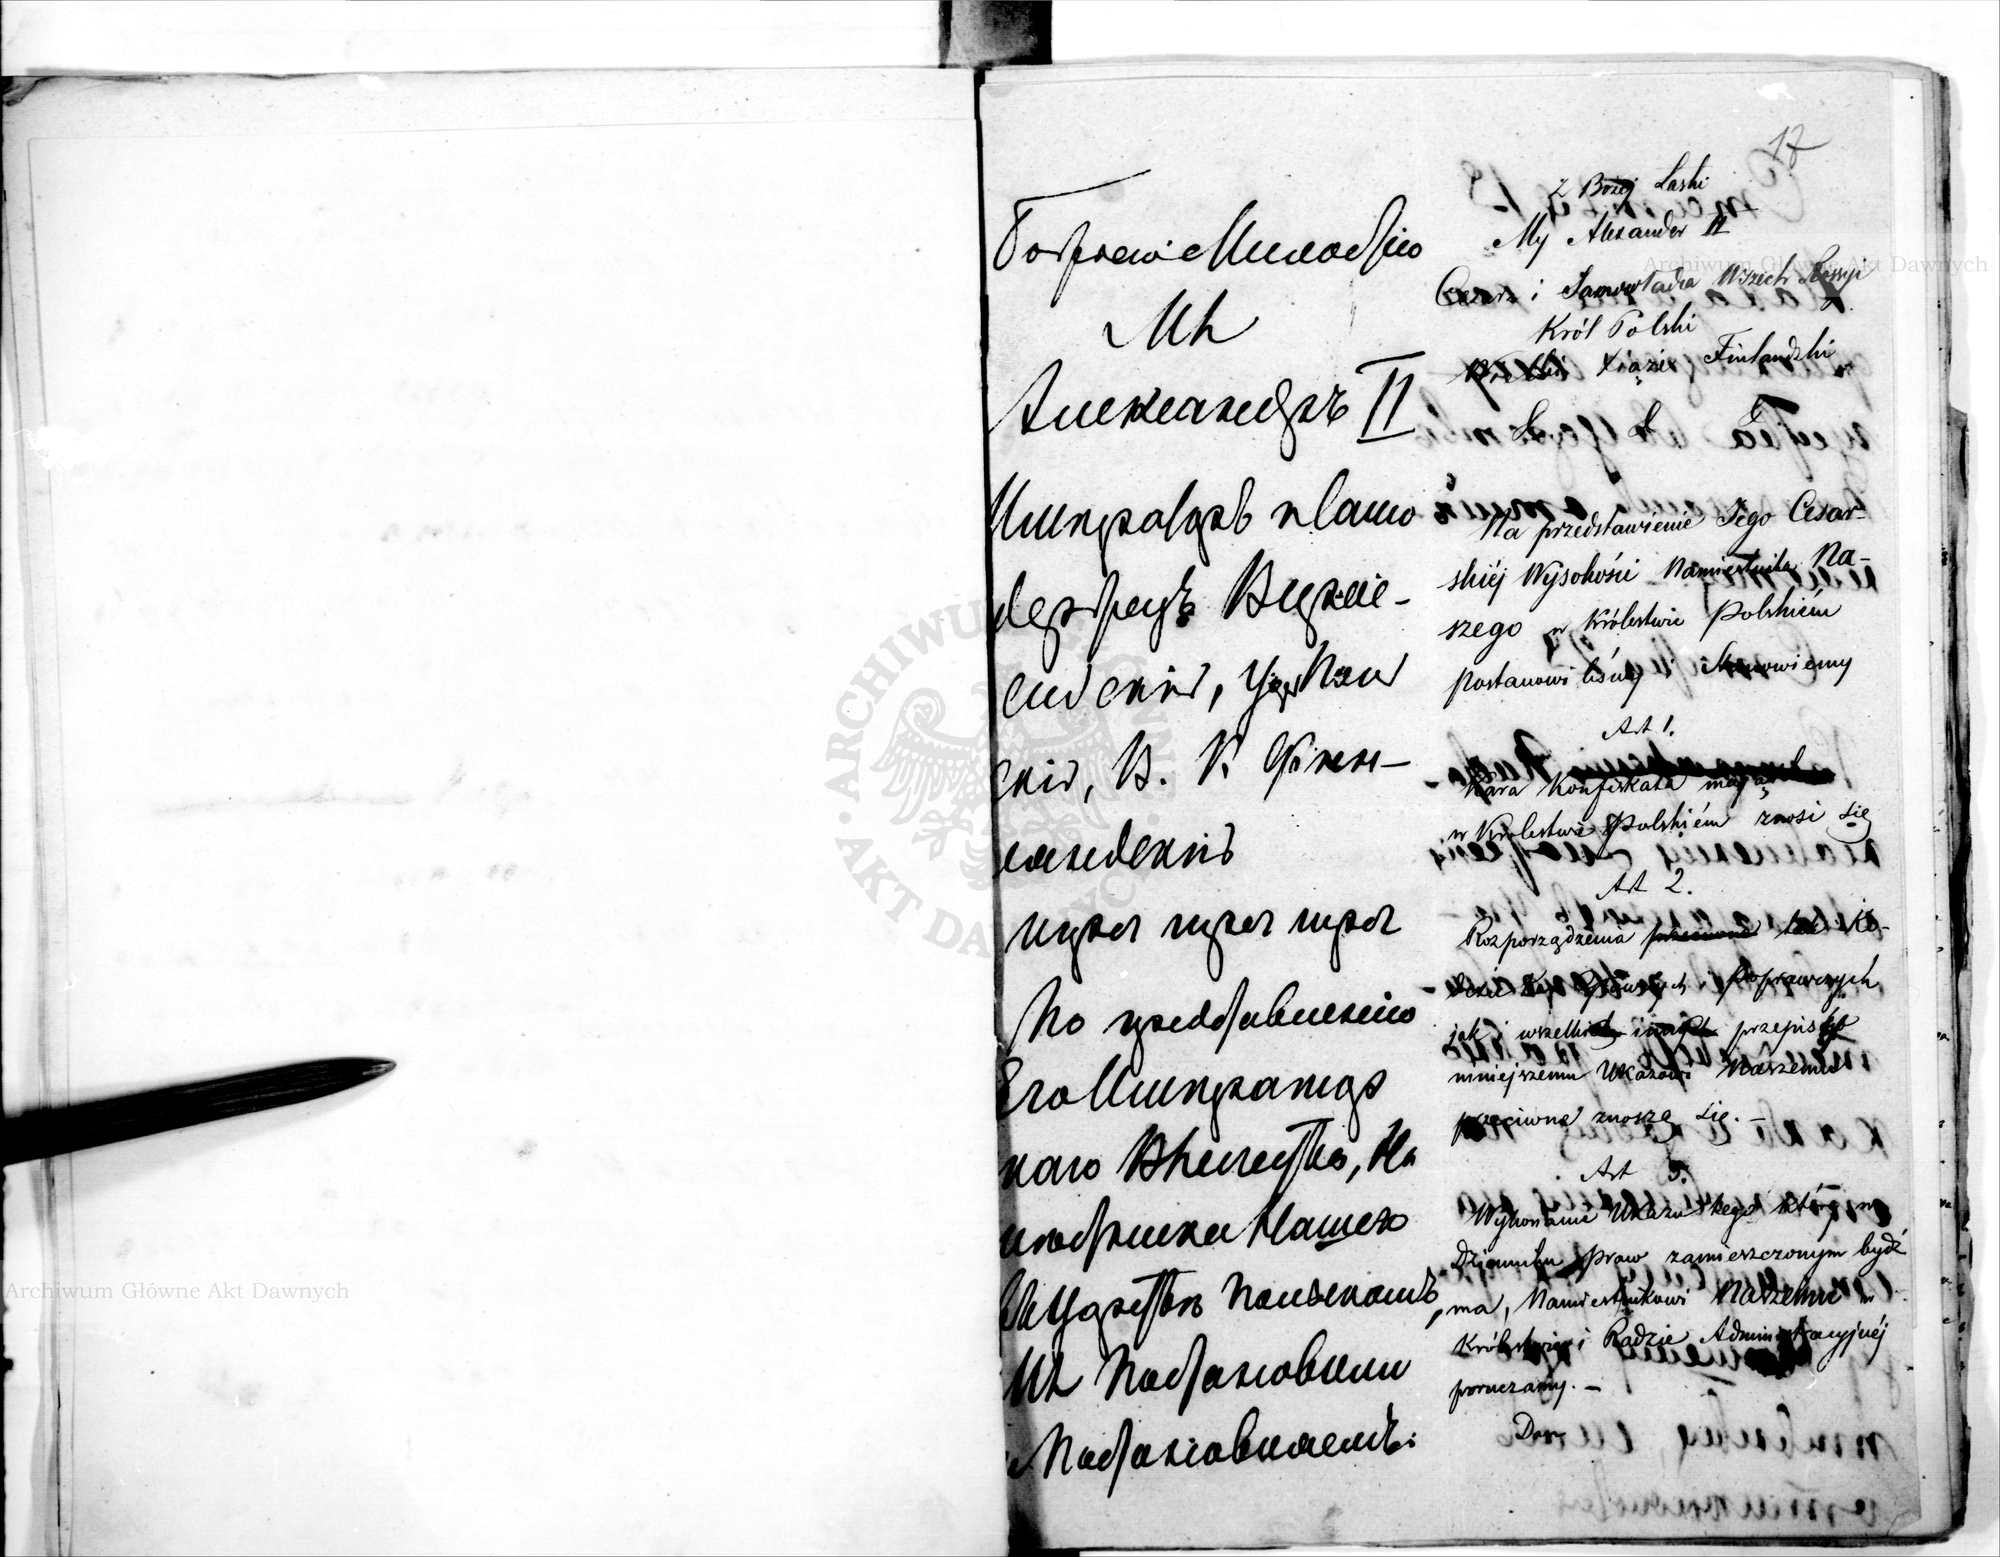 17
Божіею Милостію
Мы
Александръ II
Императоръ и Само
держецъ Всерос-
сійскій, Царь Поль
скій, В. К. Фин-
ляндскій
проч проч проч
По представленію
Его Императорс
каго Высочества, На
мѣстника Нашего
въ Царствѣ Польскомъ,
Мы Постановили
и Постановляемъ:
Z Bożej Łaski
My Alexander II
Cesarz i Samowładca Wszech Rossyi
Król Polski
Wielki Xiąże Finlandzki
&. &. &.
Na przedstawienie Jego Cesar-
skiéj Wysokości Namiestnika Na-
szego w Królestwie Polskiém
postanowiliśmy i Stanowiemy
Art 1.
Kara Konfiskata
w Królestwie Polskiém znosi się
Art 2.
Rozporządzenia przeciwne tak Ko-
dexu Kar Głównych i Poprawczych
jak i wszelkich innych przepisów
niniejszemu Ukazowi Naszemu
przeciwne znoszą się. -
Art 3.
Wykonanie Ukazu tego który w
Dzienniku praw zamieszczonym bydź
ma, Namiestnikowi Naszemu w
Królestwie i Radzie Administracyjnéj
poruczamy. -
Dan
Archiwum Główne Akt Dawnych
Archiwum Główne Akt Dawnych
ARCHIWUM GŁÓWNE AKT DAWNYCH